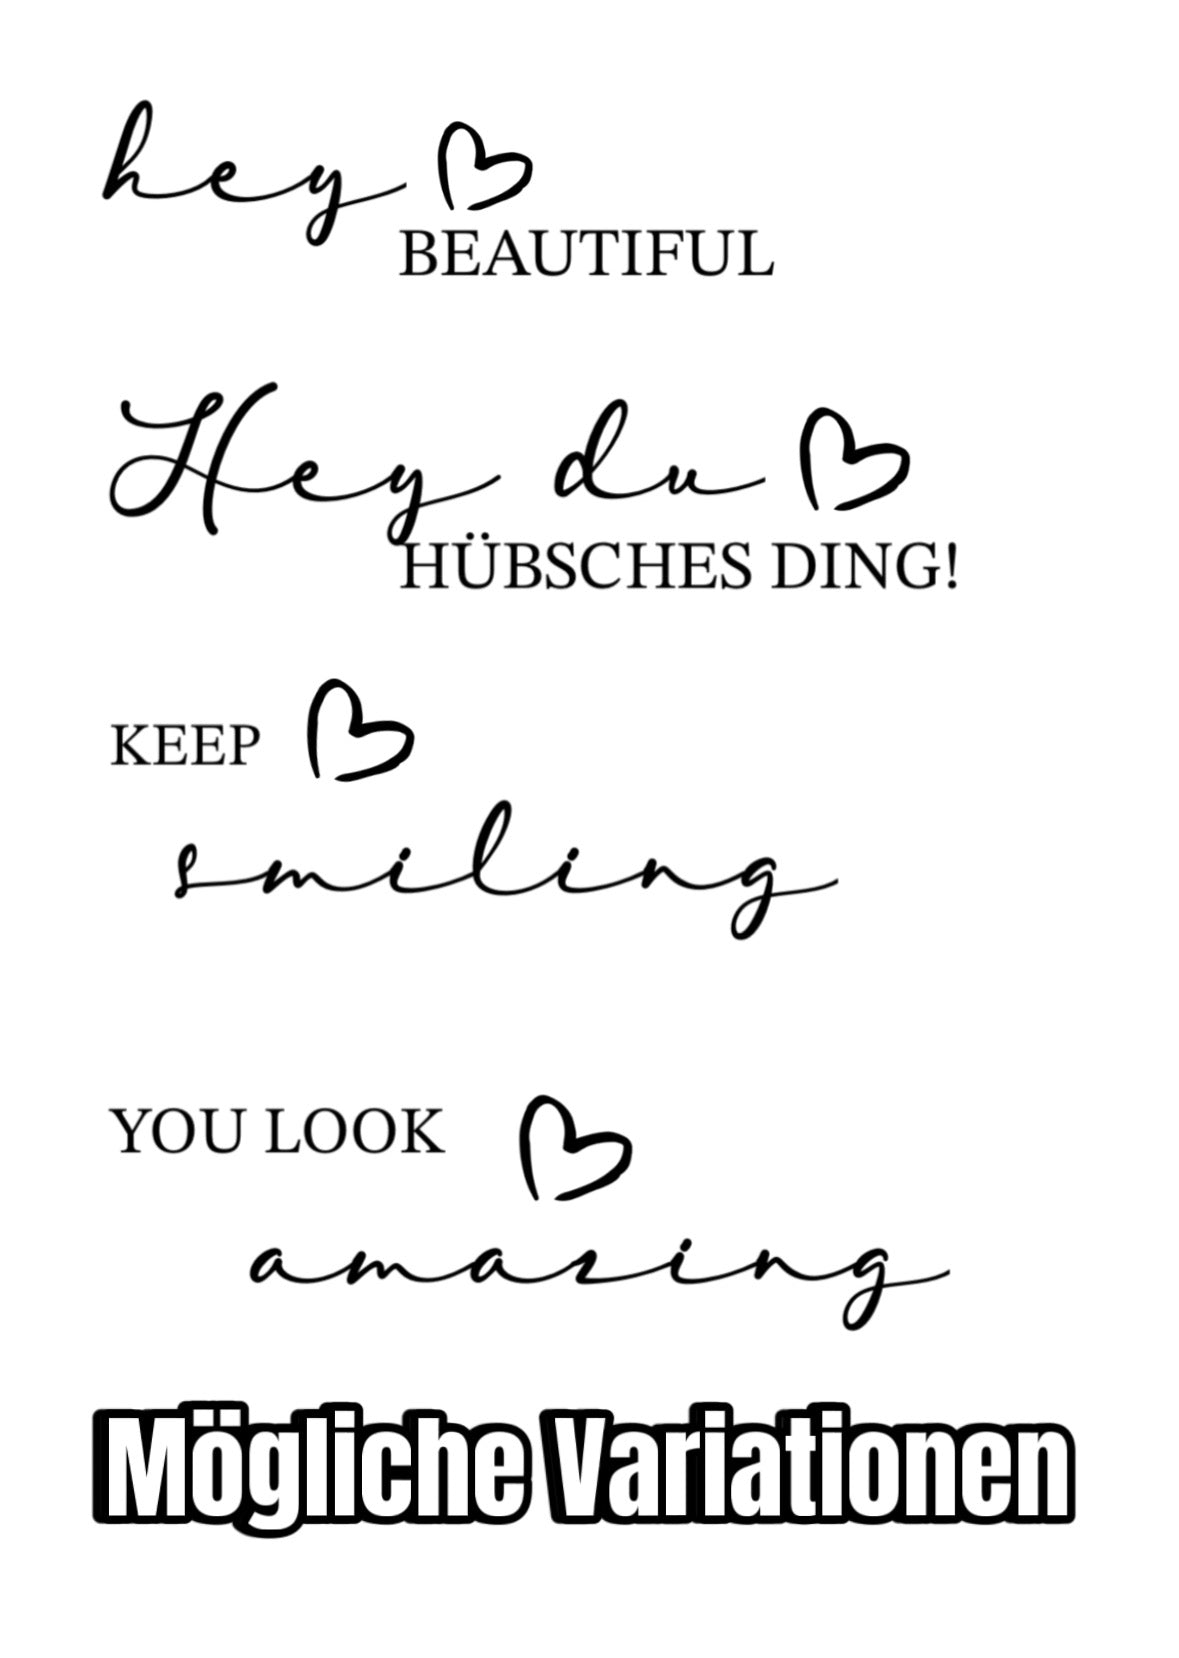 hey
BEAUTIFUL
Hey du
HÜBSCHES DING!
KEEP
smiling
YOU LOOK
amazing
Mögliche Variationen